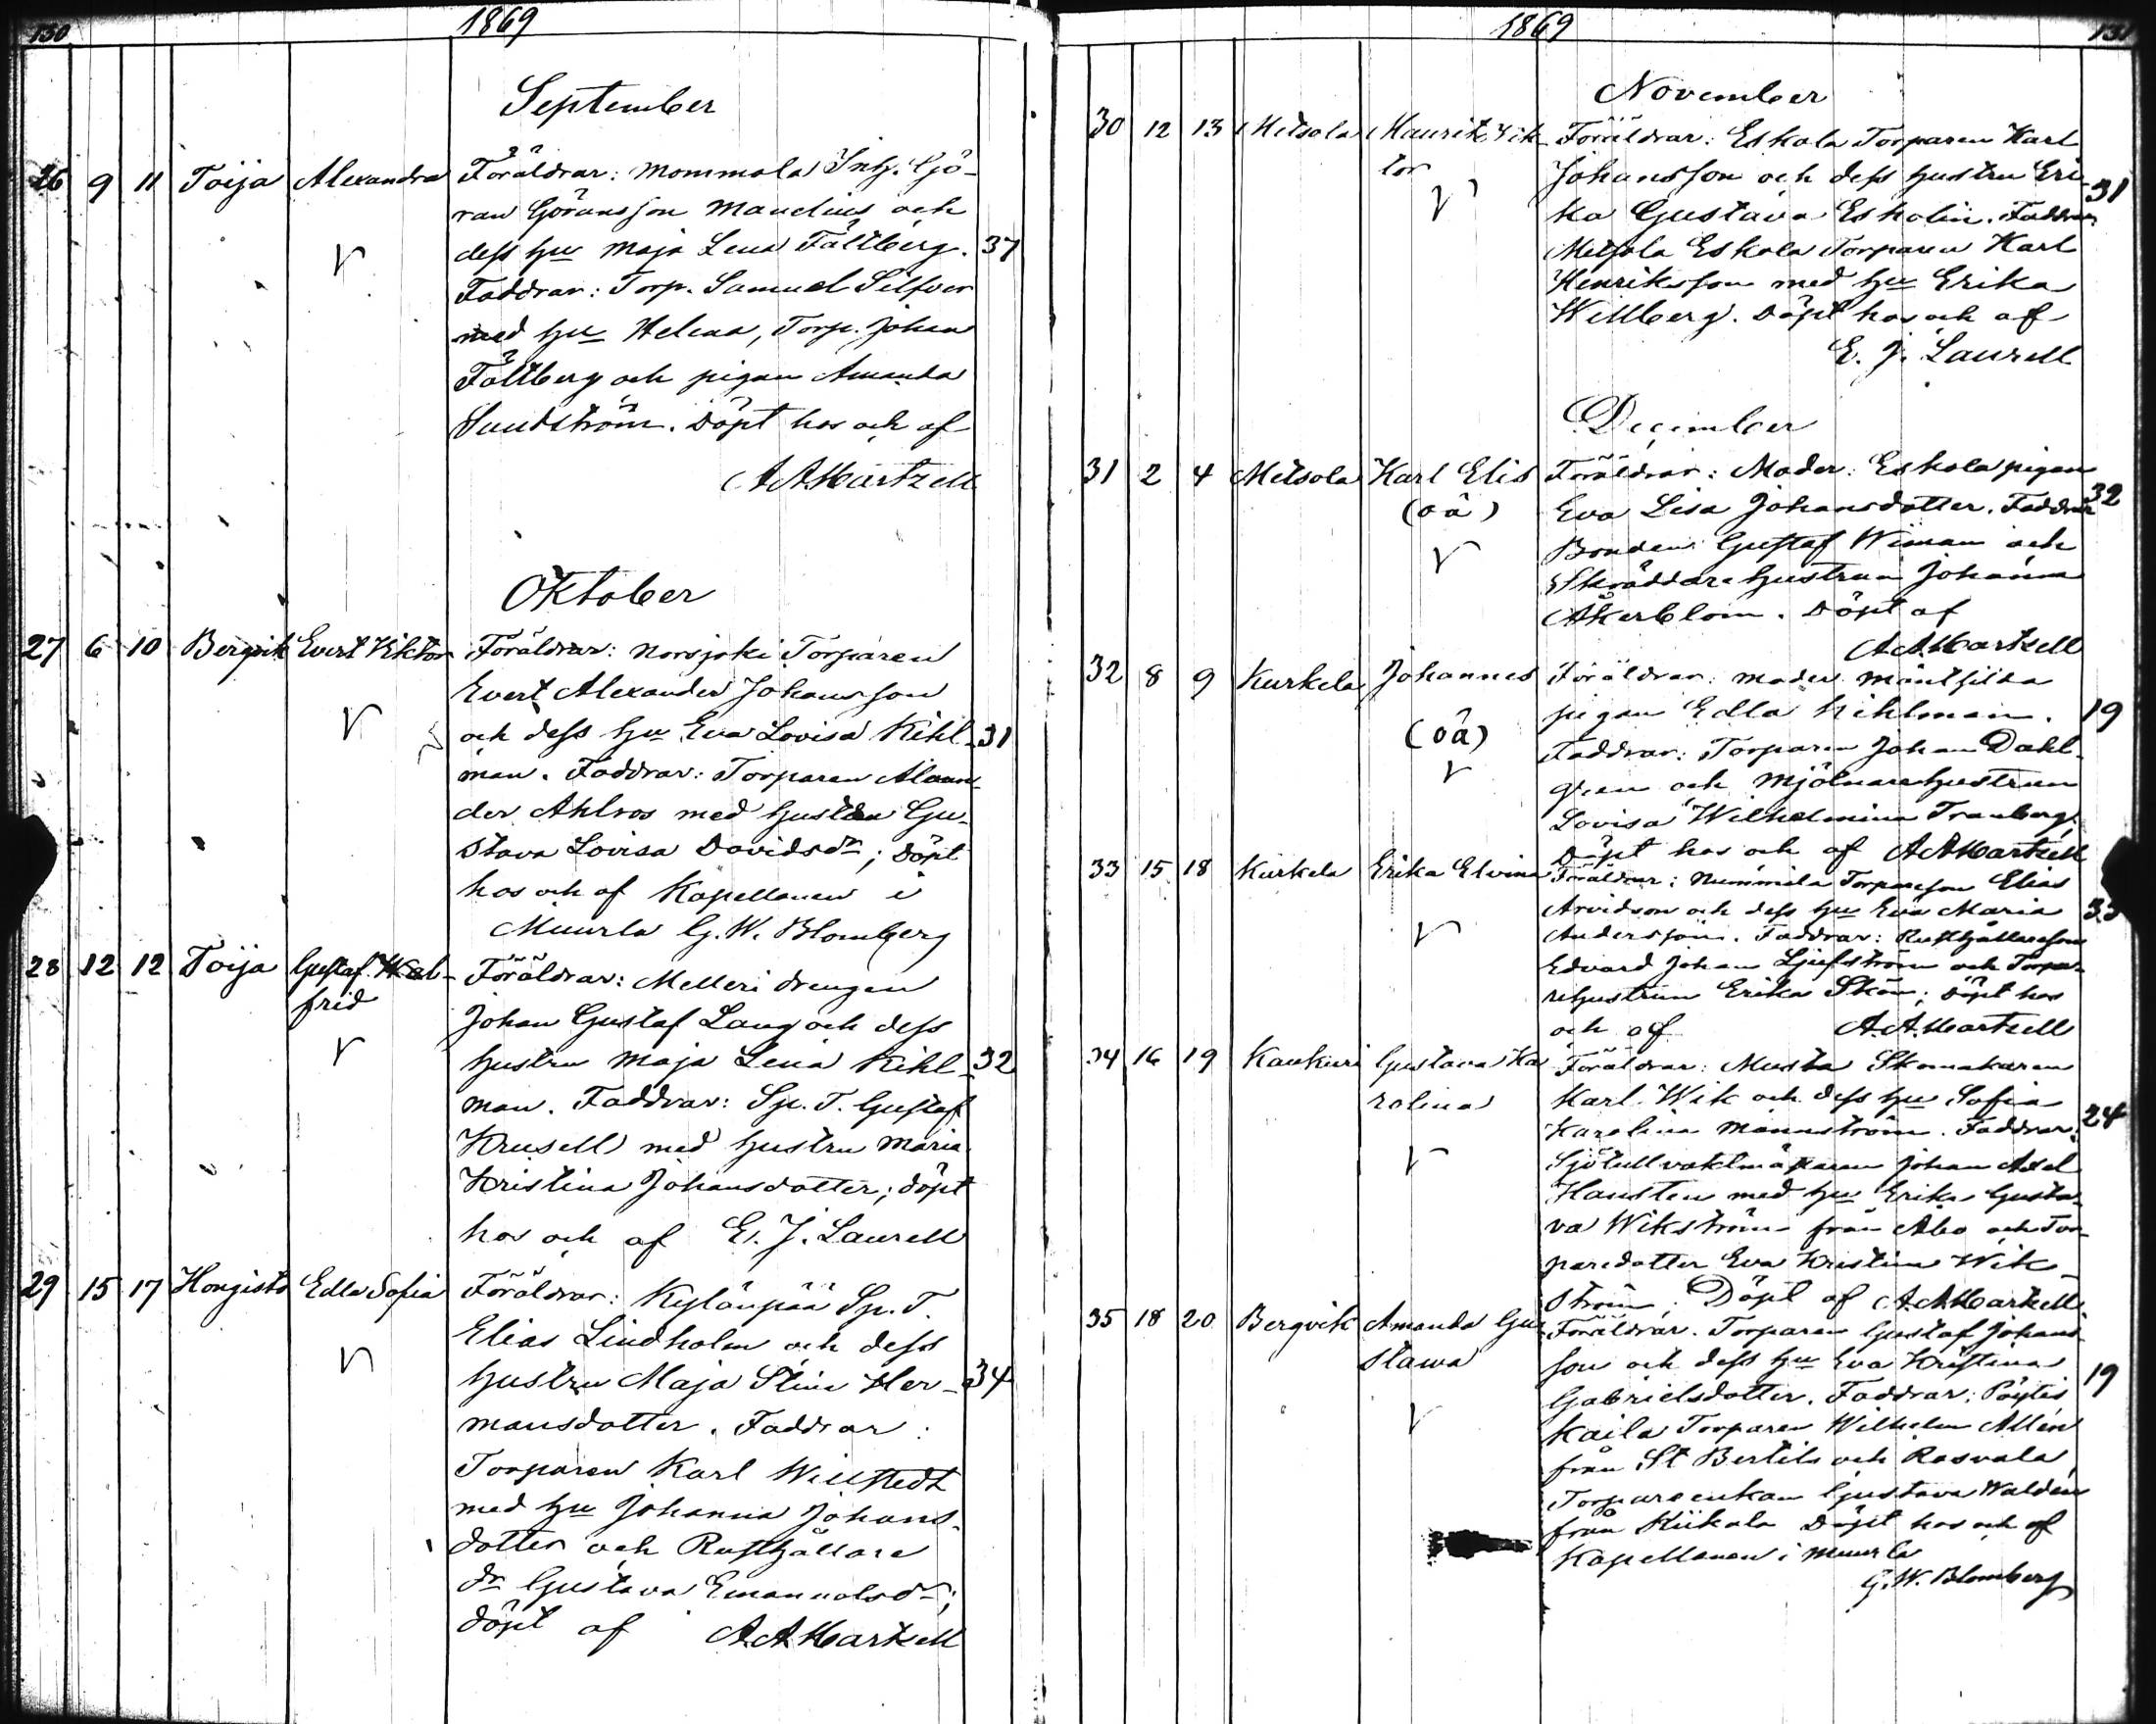 130
1869
September
26 9 11 Toija Alexandra Föräldrar: Mommola Inh. Gjö-
ran Göransson Mandelius och
dess hu Maja Lena Fältberg. 37
V
Faddrar: Torp. Samuel Silfver
med hu Helena, Torp. Johan
Fältberg och pigan Amanda
Sundström. Döpt hos och af
A A Hartzell
Oktober
27 6 10 Bergvik Evert Viktor Föräldrar: Norsjoki Torparen
Evert Alexander Johansson
V och dess hu Eva Lovisa Kihl- 31
man. Faddrar: Torparen Alexan-
der Ahlros med hustru Gu-
stava Lovisa Davidsdr; döpt
hos och af Kapellanen i
Muurla G. W. Blomberg
28 12 12 Toija Gustaf Wal- Föräldrar: Melleri drengen
frid Johan Gustaf Lang och dess
V hustru Maja Lena Kihl- 32
man. Faddrar: Sp. T. Gustaf
Krusell med hustru Maria
Kristina Johansdotter; döpt
hos och af E. J. Laurell
29 15 17 Hongisto Edla Sofia Föräldrar: Kylänpää Sp. T.
Elias Lindholm och dess
V hustru Maja Stina Her- 34
mansdotter. Faddrar:
Torparen Karl Willstedt
med hu Johanna Johans-
dotter och Rusthållare
dr Gustava Emanuelsdr;
döpt af A A Hartzell
1869
131
November
30 12 13 Metsola Maurits Vik- Föräldrar: Eskola Torparen Karl
tor Johansson och dess hustru Eri- 31
V ka Gustava Eskolin. Faddrar
Metsola Eskola Torparen Karl
Henriksson med hu Erika
Willberg. Döpt hos och af
E. J. Laurell
December
31 2 4 Metsola Karl Elis Föräldrar: Moder: Eskola pigan
(oä) Eva Lisa Johansdotter. Faddrar 32
V Bonden Gustaf Wiman och
Skräddare hustrun Johanna
Åkerblom. Döpt af
A A Hartzell
32 8 9 Kurkela Johannes Föräldrar: moder
pigan Edla Kihlman. 19
(oä) Faddrar: Torparen Johan Dahl-
V gren och Mjölnarehustrun
Lovisa Wilhelmina Tranberg.
Döpt hos och af A A Hartzell
33 15 18 Kurkela Erika Elvina Föräldrar: Nummila Torpareson Elias
Arvidson och dess hu Eva Maria 33
V Andersson. Faddrar: Rusthållareson
Edvard Johan Ljufström och Torpa-
rehustrun Erika Skön; Döpt hos
och af A A Hartzell
34 16 19 Kaukuri Gustava Ka- Föräldrar: Musta Skomakaren
rolina Karl Wik och dess hu Sofia
Karolina Mannström. Faddrar: 24
V Sjötullvaktmästaren Johan Axel
Hansten med hu Erika Gusta-
va Wikström från Åbo och Tor-
paredotter Eva Kristina Wik-
ström; Döpt af A A Hartzell
35 18 20 Bergvik Amanda Gu- Föräldrar. Torparen Gustaf Johans-
stawa son och dess hu Eva Kristina
Gabrielsdotter. Faddrar: Pöytis 19
V Kaila Torparen Wilhelm Allén
från St Bertils och Rasvala
Torpareenkan Gustava Walden
från Kiikala Döpt hos och af
Kapellanen i Muurla
G. W. Blomberg